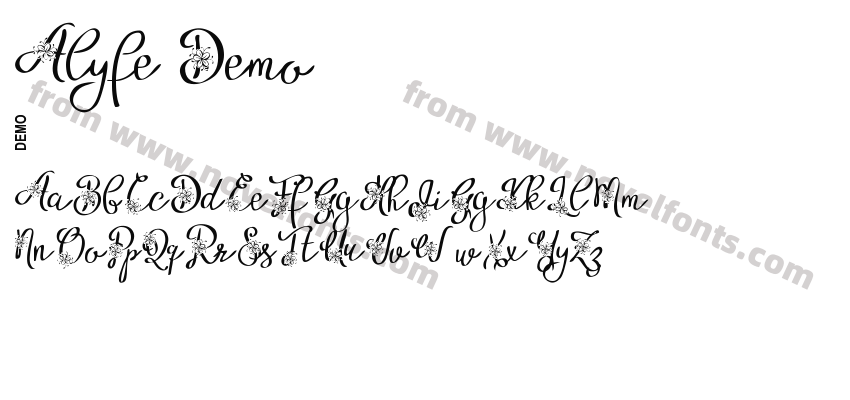 Alyfe Demo
DEMO
from www.novelfonts.com
from www.novelfonts.com
AaBbCcDdEeFfGgHhIiGgKkLlMm
NnOoPpQqRrSsTtUuVvWwXxYyZz